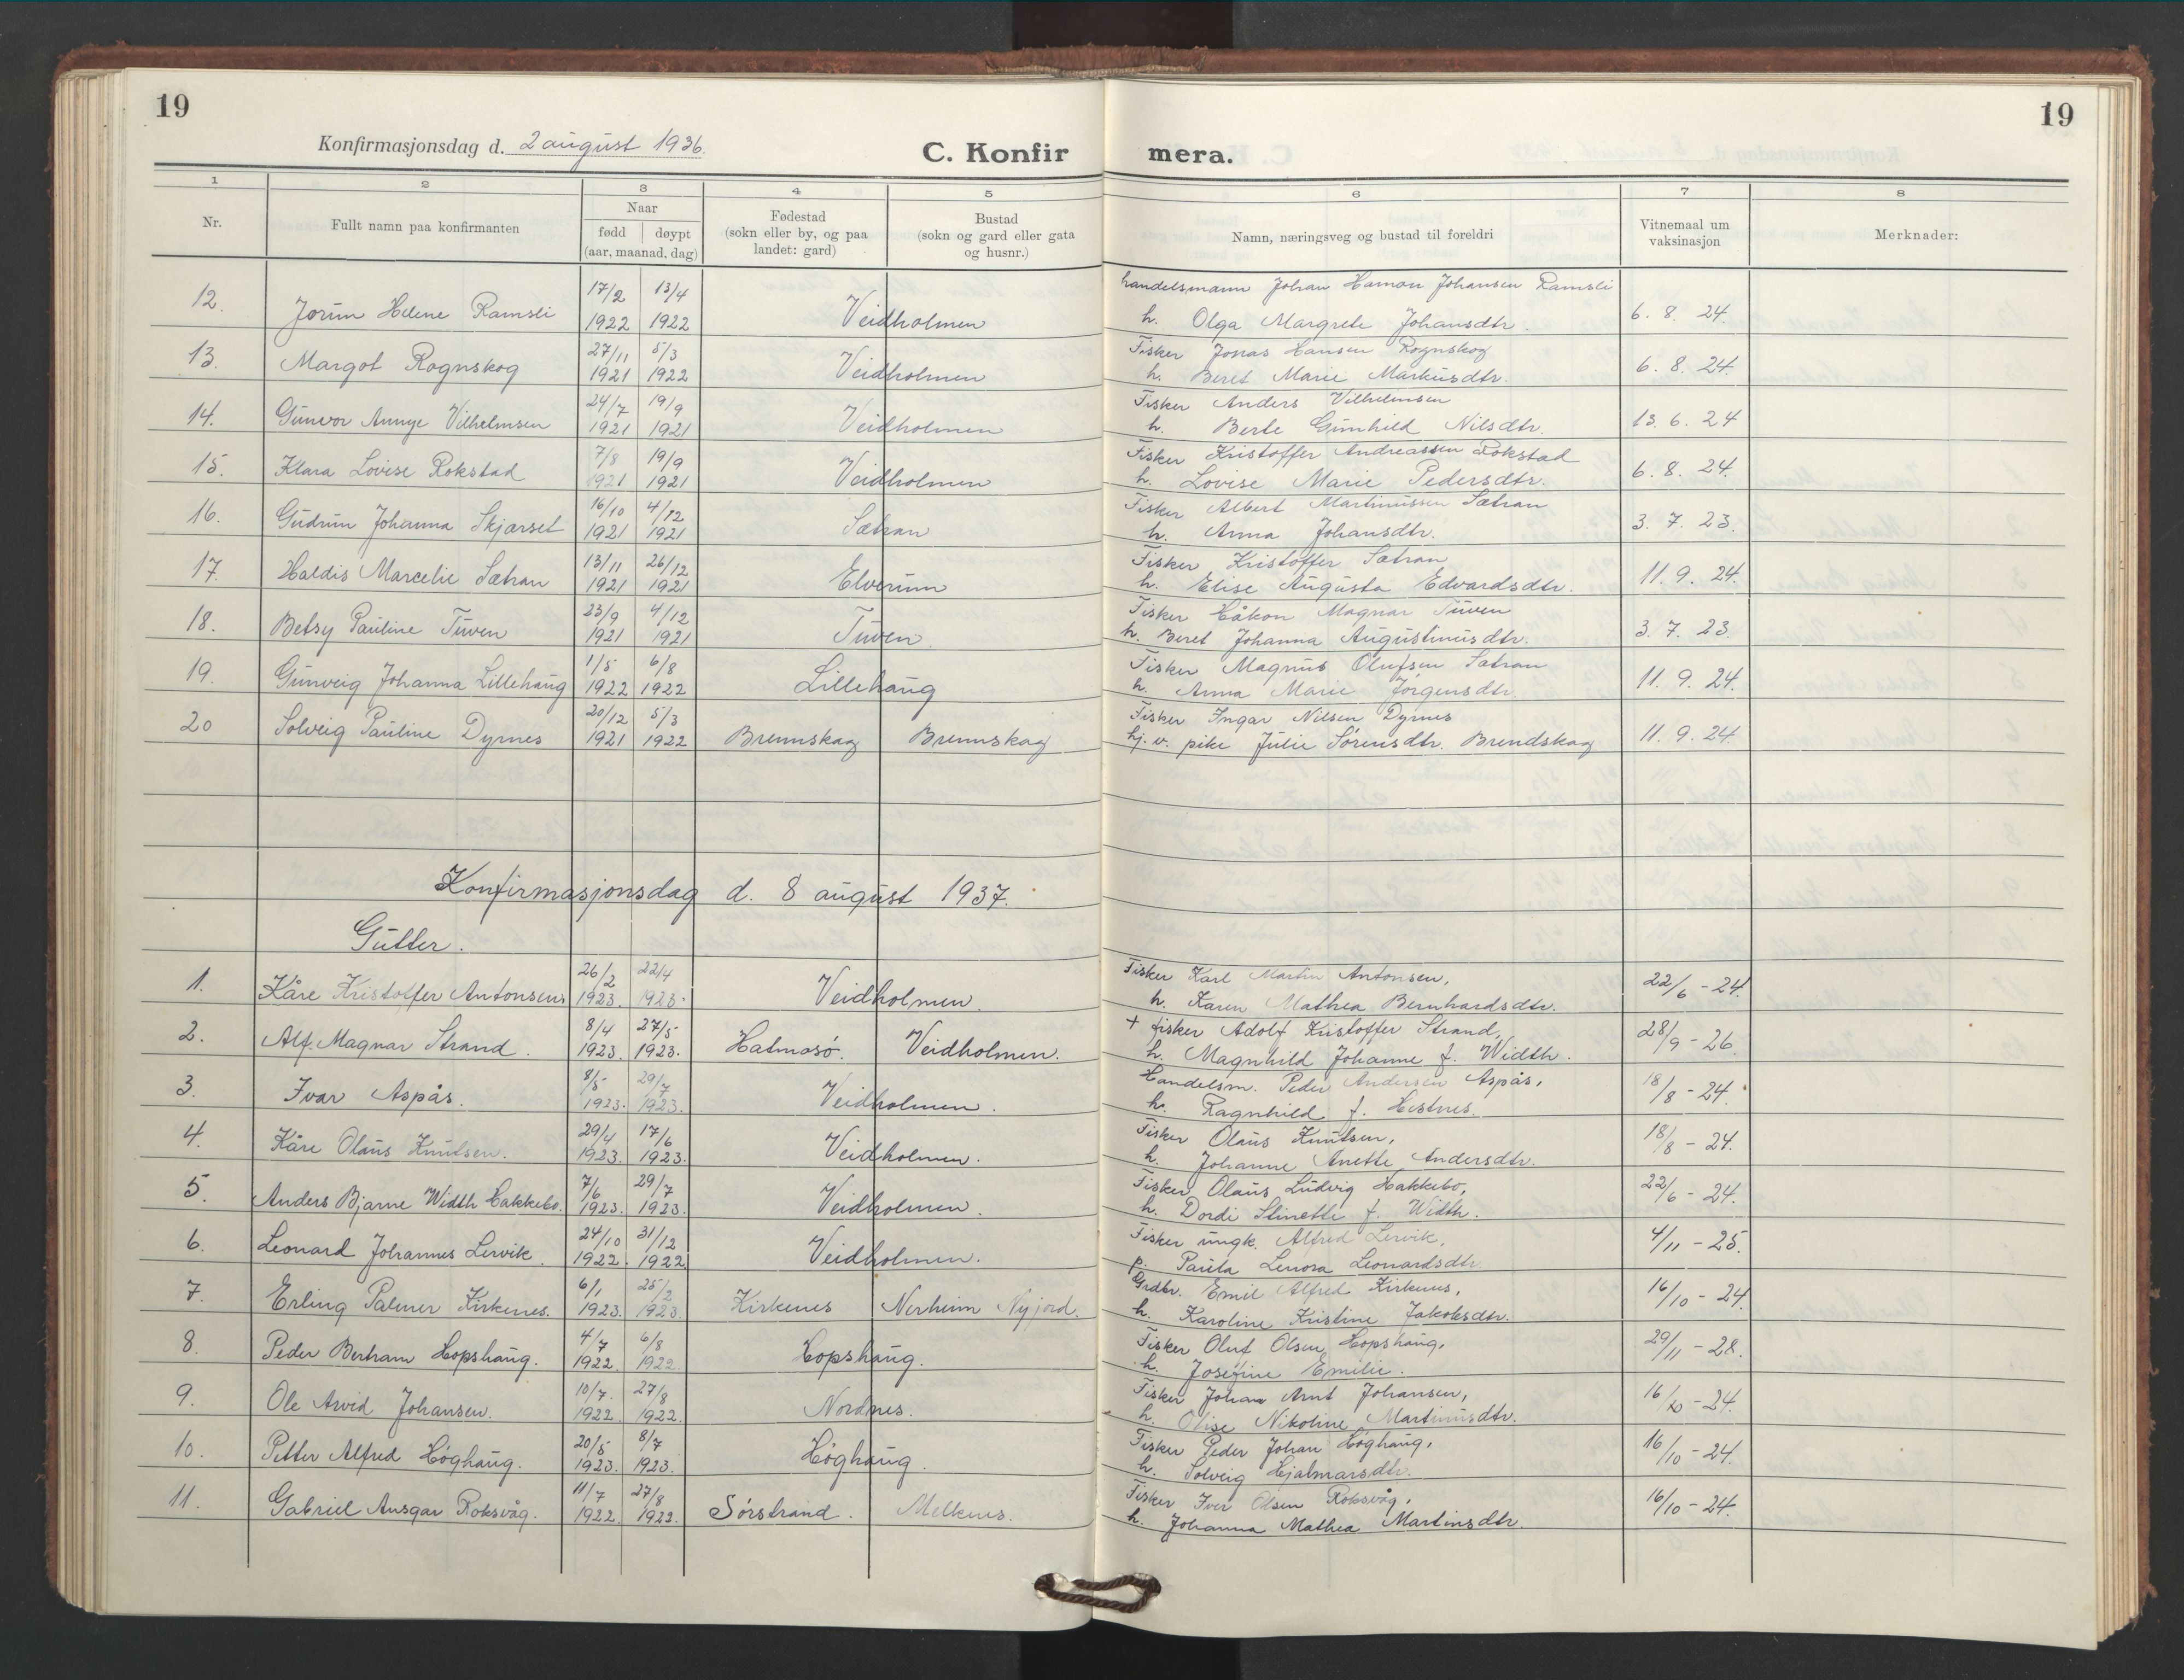 19
19
Konfirmasjonsdag d. 2 august 1936.
C. Konfirmera.
1 2 3 4 5 6 7 8
Nr.
Fullt namn paa konfirmanten
Naar
fødd døypt
(aar, maanad, dag)
Fødestad
(sokn eller by, og paa
landet: gard)
Bustad
(sokn og gard eller gata
og husnr.)
Namn, næringsveg og bustad til foreldri
Vitnemaal um
vaksinasjon
Merknader:
12. Jorun Helene Ramsli 17/2 1922 13/4 1922 Veidholmen handelsmann Johan Hamon Johansen Ramsli
h. Olga Margrete Johansdtr. 6. 8. 24.
13. Margot Rognskog 27/11 1921 5/3 1922 Veidholmen Fisker Jonas Hansen Rognskog
h. Beret Marie Markusdtr. 6. 8. 24.
14. Gunvor Annye Vilhelmsen 24/7 1921 19/9 1921 Veidholmen Fisker Anders Vilhelmsen
h. Berte Gunhild Nilsdtr. 13. 6. 24
15. Klara Lovise Rokstad 7/8 1921 19/9 1921 Veidholmen Fisker Kristoffer Andreassen Rokstad
h. Lovise Marie Pedersdtr. 6. 8. 24.
16. Gudrun Johanna Skjærset 16/10 1921 4/12 1921 Sætran Fisker Albert Martinussen Sætran
h. Anna Johansdtr. 3. 7. 23.
17. Haldis Marcelie Sætran 13/11 1921 26/12 1921 Elverum Fisker Kristoffer Sætran
h. Elise Augusta Edvardsdtr. 11. 9. 24.
18. Betsy Pauline Tuven 23/9 1921 4/12 1921 Tuven Fisker Håkon Magnar Tuven
h. Beret Johanna Augustinusdtr. 3. 7. 23.
19. Gunveig Johanna Lillehaug 1/5 1922 6/8 1922 Lillehaug Fisker Magnus Olufsen Sætran
h. Anna Marie Jørgensdtr. 11. 9. 24.
20 Solveig Pauline Dyrnes 20/12 1921 5/3 1922 Brennskag Brennskag Fisker Ingar Nilsen Dyrnes
hj. v. pike Julie Sørensdtr. Brendskag 11. 9. 24.
Konfirmasjonsdag d. 8 august 1937.
Gutter.
1. Kåre Kristoffer Antonsen 26/2 1923. 22/4 1923. Veidholmen Fisker Karl Martin Antonsen,
h. Karen Mathea Bernhardsdtr. 22/6 - 24.
2. Alf. Magnar Strand. 8/4 1923. 27/5 1923. Hatmosö. Veidholmen. + fisker Adolf Kristoffer Strand,
h. Magnhild Johanne f. Width. 28/9 - 26.
3. Ivar Aspås. 8/5 1923. 29/7 1923. Veidholmen. Handelsm. Peder Andersen Aspås,
h. Ragnhild f. Hestnes. 18/8 - 24.
4. Kåre Olaus Knutsen. 29/4 1923. 17/6 1923. Veidholmen. Fisker Olaus Knutsen,
h. Johanne Anette Andersdtr. 18/8 - 24.
5. Anders Bjarne Width Hakkebo. 7/6 1923. 29/7 1923. Veidholmen. Fisker Olaus Ludvig Hakkebo,
h. Dordi Stinette f. Width. 22/6 - 24.
6. Leonard Johannes Lervik. 24/10 1922. 31/12 1922 Veidholmen. Fisker ungk. Alfred Lervik,
p. Paula Lenora Leonardsdtr. 4/11 - 25.
7. Erling Palmer Kirkenes. 6/1 1923. 25/2 1923. Kirkenes Nerheim Nyjord. Grdbr. Emil Alfred Kirkenes,
h. Karoline Kristine Jakobsdtr. 16/10 - 24.
8. Peder Bertram Hopshaug. 4/7 1922. 6/8 1922. Hopshaug. Fisker Oluf Olsen Hopshaug,
h. Josefine Emilie. 29/11 - 28.
9. Ole Arvid Johansen. 10/7. 1922. 27/8 1922. Nordnes. Fisker Johan Arnt Johansen,
h. Olise Nikoline Martinusdtr. 16/10 - 24.
10. Petter Alfred Höghaug. 20/5 1923. 8/7 1923. Höghaug. Fisker Peder Johan Höghaug,
h. Solveig Hjalmarsdtr. 16/10 - 24.
11. Gabriel Ansgar Roksvåg. 11/7 1922. 27/8 1922. Sörstrand. Melknes. Fisker Iver Olsen Roksvåg,
h. Johanna Mathea Martinsdtr. 16/10 - 24.